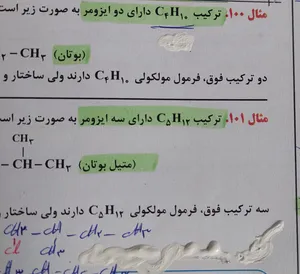 مثال ۱۰۰. ترکیب C₄H₁₀ دارای دو ایزومر به صورت زیر است
۲ − CH₃ (بوتان)
دو ترکیب فوق، فرمول مولکولی C₄H₁₀ دارند ولی ساختار و
مثال ۱۰۱. ترکیب C₅H₁₂ دارای سه ایزومر به صورت زیر است
CH₃
− CH − CH₃ (متیل بوتان)
سه ترکیب فوق، فرمول مولکولی C₅H₁₂ دارند ولی ساختار